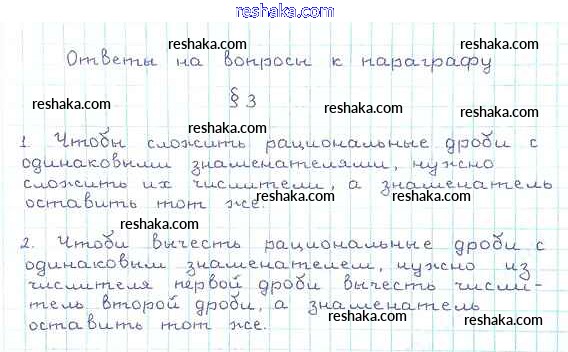 reshaka.com
reshaka.com
Ответы на вопросы к параграфу
reshaka.com
reshaka.com
§ 3
reshaka.com
reshaka.com
reshaka.com
1. Чтобы сложить рациональные дроби с
одинаковыми знаменателями, нужно
reshaka.com
reshaka.com
сложить их числители, а знаменатель
оставить тот же.
reshaka.com
reshaka.com
2. Чтоби вычесть рациональные дроби с
одинаковым знаменателем, нужно из
числителя первой дроби вычесть числи-
тель второй дроби, а знаменатель
reshaka.com
reshaka.com
оставить тот же.
reshaka.com